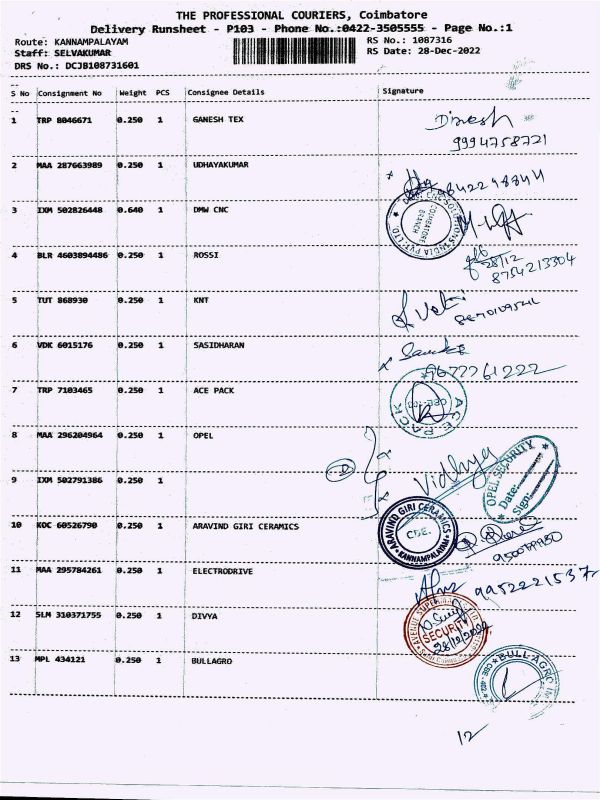 THE PROFESSIONAL COURIERS, Coimbatore
Delivery Runsheet - P103 - Phone No.:0422-3505555 - Page No.:1
Route: KANNAMPALAYAM
RS No.: 1087316
Staff: SELVAKUMAR
RS Date: 28-Dec-2022
DRS No.: DCJB108731601
S No Consignment No Weight PCS Consignee Details Signature
1 TRP 8046671 0.250 1 GANESH TEX Dinesh
9994758721
2 MAA 287663989 0.250 1 UDHAYAKUMAR
3 IXM 502826448 0.640 1 DMW CNC
COIMBATORE BRANCH
4 BLR 4603894486 0.250 1 ROSSI
28/12
8754213304
5 TUT 868930 0.250 1 KNT
6 VDK 6015176 0.250 1 SASIDHARAN
9677761222
7 TRP 7103465 0.250 1 ACE PACK
ACE PACK
8 MAA 296204964 0.250 1 OPEL
Vidhya
OPEL SECURITY
Date:
Sign:
9 IXM 502791386 0.250 1
10 KOC 60526790 0.250 1 ARAVIND GIRI CERAMICS
ARAVIND GIRI CERAMICS
CBE.
KANNAMPALAYAM
11 MAA 295784261 0.250 1 ELECTRODRIVE
9952221537
12 SLM 310371755 0.250 1 DIVYA
SECURITY
13 MPL 434121 0.250 1 BULLAGRO
BULL AGRO
12